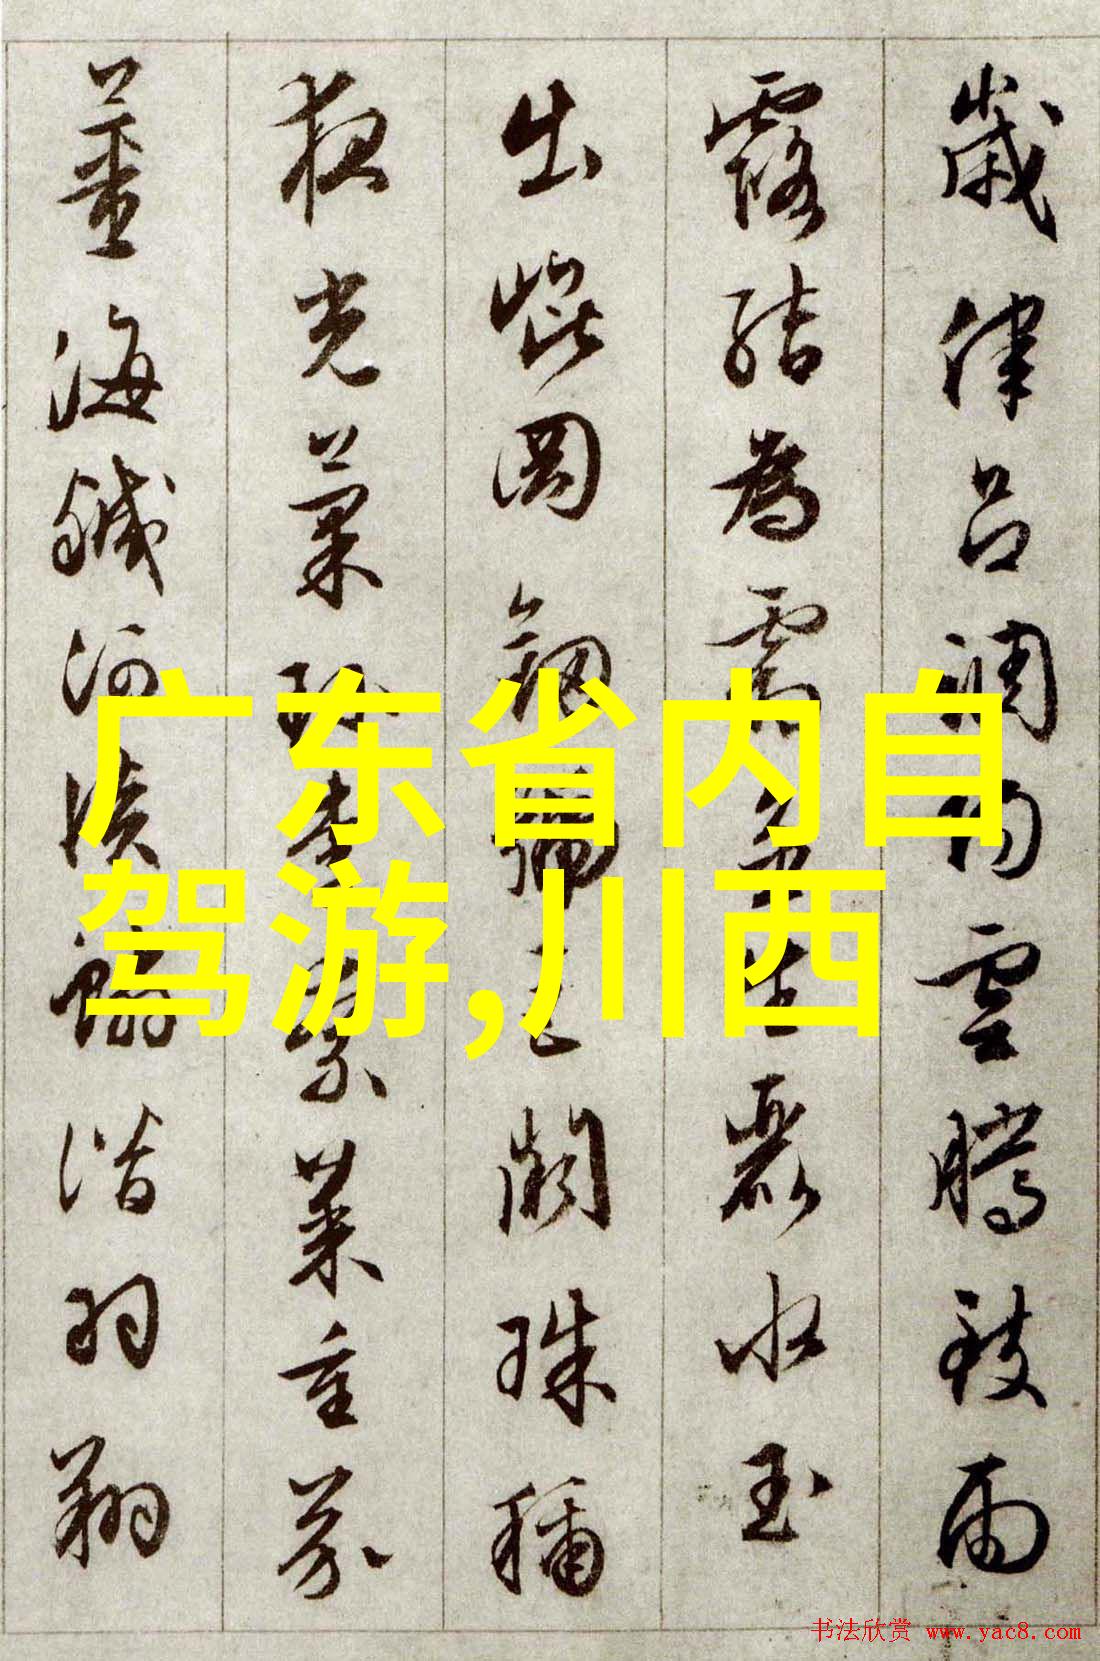 歲律呂調陽雲騰致雨
露結為霜金生麗水玉
出崐岡釼號巨闕珠稱
夜光菓珍李柰菜重芥
薑海鹹河淡鱗潛羽翔
广东省内自
驾游,川西
书法欣赏 www.yac8.com